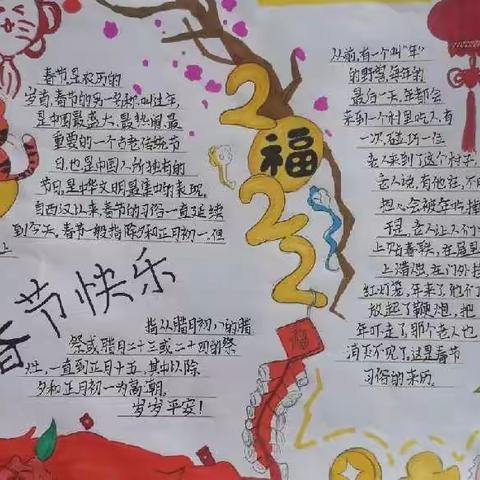 春节是农历的
岁首,春节的另一名称,叫过年,
是中国最盛大、最热闹、最
重要的一个古老传统节
日,也是中国人所独有的
节日,是中华文明最集中的表现,
自西汉以来,春节的习俗一直延续
到今天。春节一般指除夕和正月初一,但
上
春节快乐
指从腊月初八的腊
祭或腊月二十三或二十四的祭
灶,一直到正月十五,其中以除
夕和正月初一为高潮。
岁岁平安!
2
福
2
2
福
从前,有一个叫“年”
的野兽,每年的
最后一天,年都会
来到一个村里吃人,有
一次,碰巧一位
老人来到了这个村子,
老人说,有他在,不用
担心会被年
于是,老人让人们
上贴春联,在屋里
上蜡烛,在门外挂
红灯笼,年来了,他们
放起了鞭炮,把
年吓走了那个老人也
消失不见了,这是春节
习俗的来历。